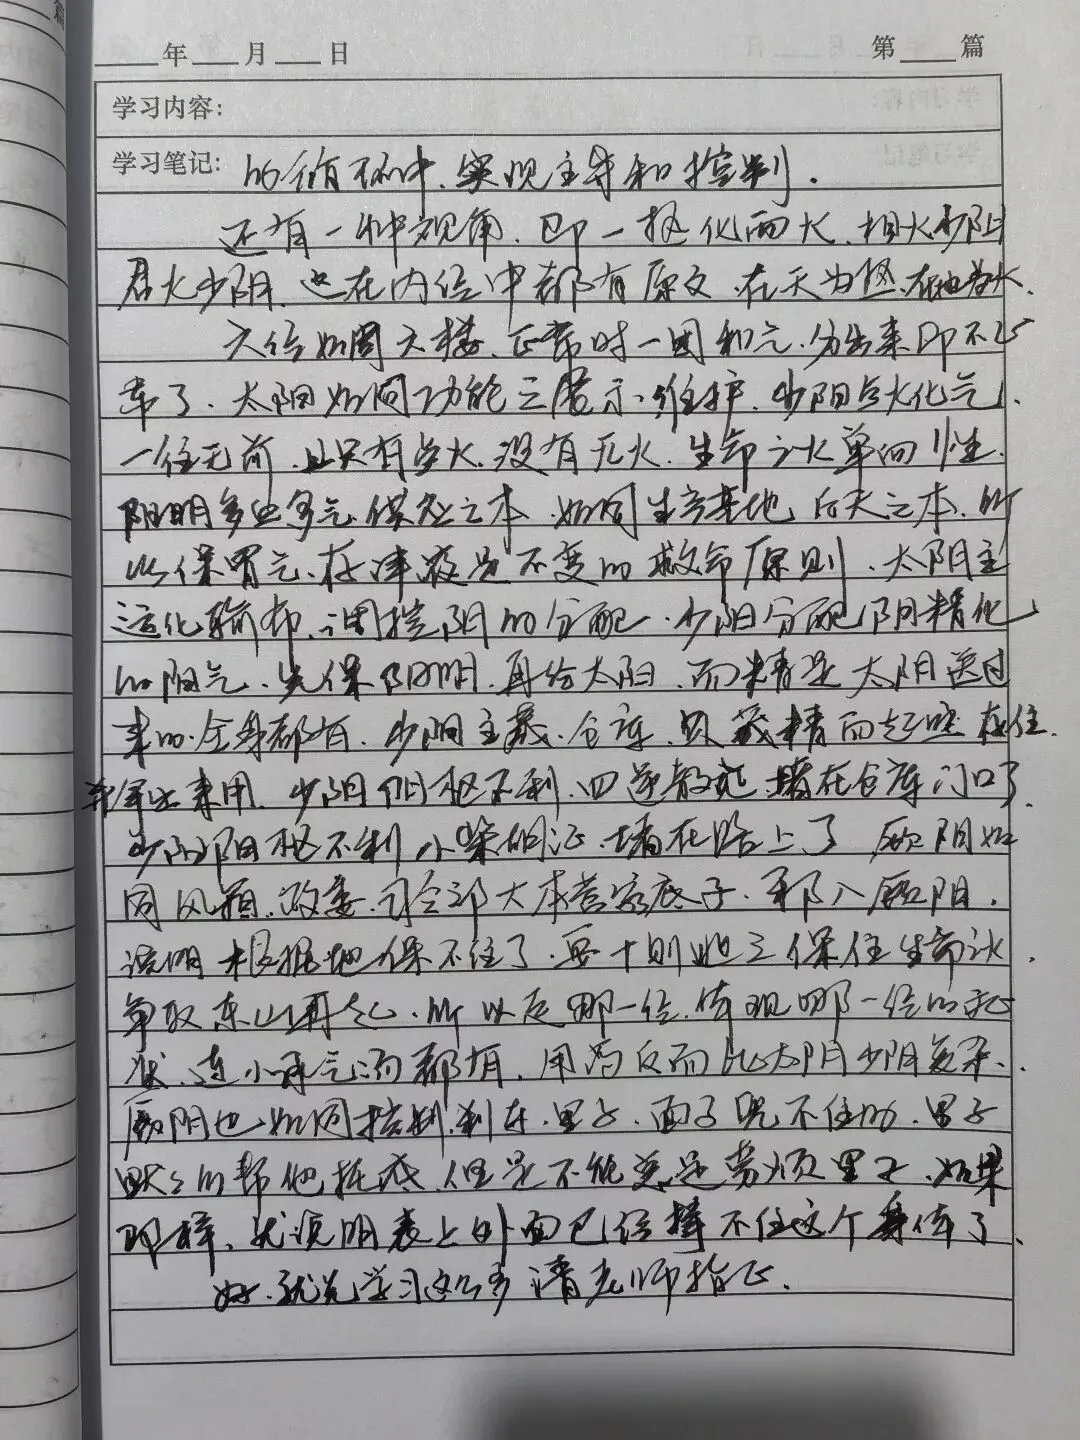 年 月 日 第 篇
学习内容：
学习笔记： 的循环中、实现主导和控制.
还有一种视角、即一热化两火、相火少阳
君火少阴、这在内经中都有原文、在天为热、在地为火、
六经如同大楼、正常时一团和气、分出来即不正
常了、太阳如同功能之展示、维护、少阳点火化气、
一往无前、且只有点火、没有灭火、生命之火单向性、
阳明多血多气、供应之本、如同生产基地、后天之本、所
以保胃气、存津液是不变的救命原则、太阴主
运化输布、调控阴的分配、少阳分配阴精化
的阳气、先保阳明、再给太阳、而精是太阴送过
来的、全身都有、少阴主藏、仓库、只藏精而起 存住、
并拿出来用、少阴阴枢不利、四逆散证、堵在仓库门口了、
少阳阳枢不利、小柴胡证、堵在路上了、厥阴如
同 政委、司令部大本营家底子、邪入厥阴、
说明根据地保不住了、要 保住生命之火、
争取东山再起、所以走哪一经、体现哪一经的症
状、连小承气汤都有、用药反而比太阴少阴复杂、
厥阴也如同控制、刹车、里子、面子兜不住的、里子
默々的帮他托底、但是不能总是劳烦里子、如果
那样、就说明表上外面已经撑不住这个身体了、
好、就先学习这么多、请老师指正.